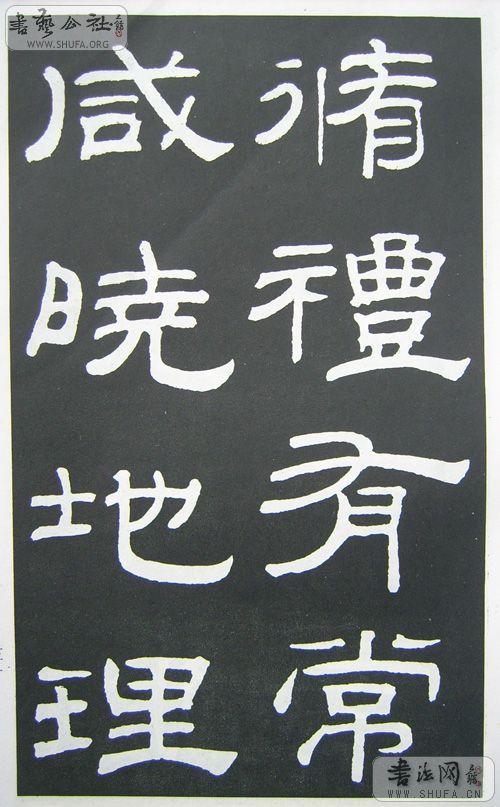 書藝公社
WWW.SHUFA.ORG
循禮有常
咸曉地理
書法网
WWW.SHUFA.CN